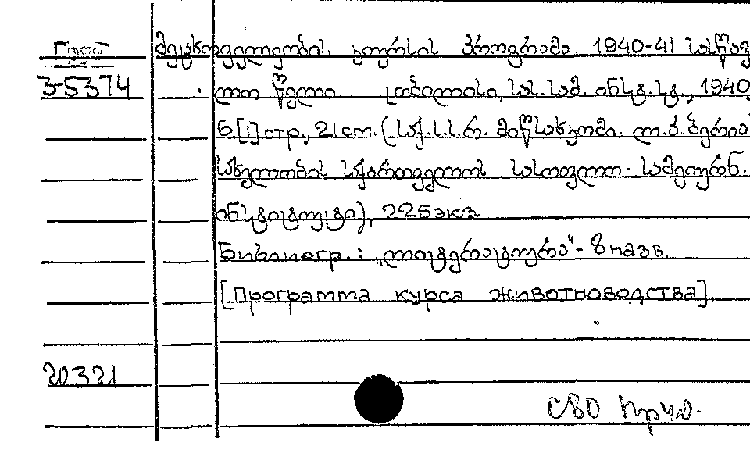 მეცხოველეობის კურსის პროგრამა 1940-41 სასწავ
3-5374
ლო წელი თბილისი, სას. სამ. ინსტ. სტ., 1940
6[1]стр., 21 cm. (საქ. ს.ს.რ. მიწსახკომი. ლ. პ. ბერია
სახელობის საქართველოს სასოფლო-სამეურნ.
ინსტიტუტი), 225 экз
Библиогр.: „ლიტერატურა“ - 8 назв.
[Программа курса животноводства]
20321